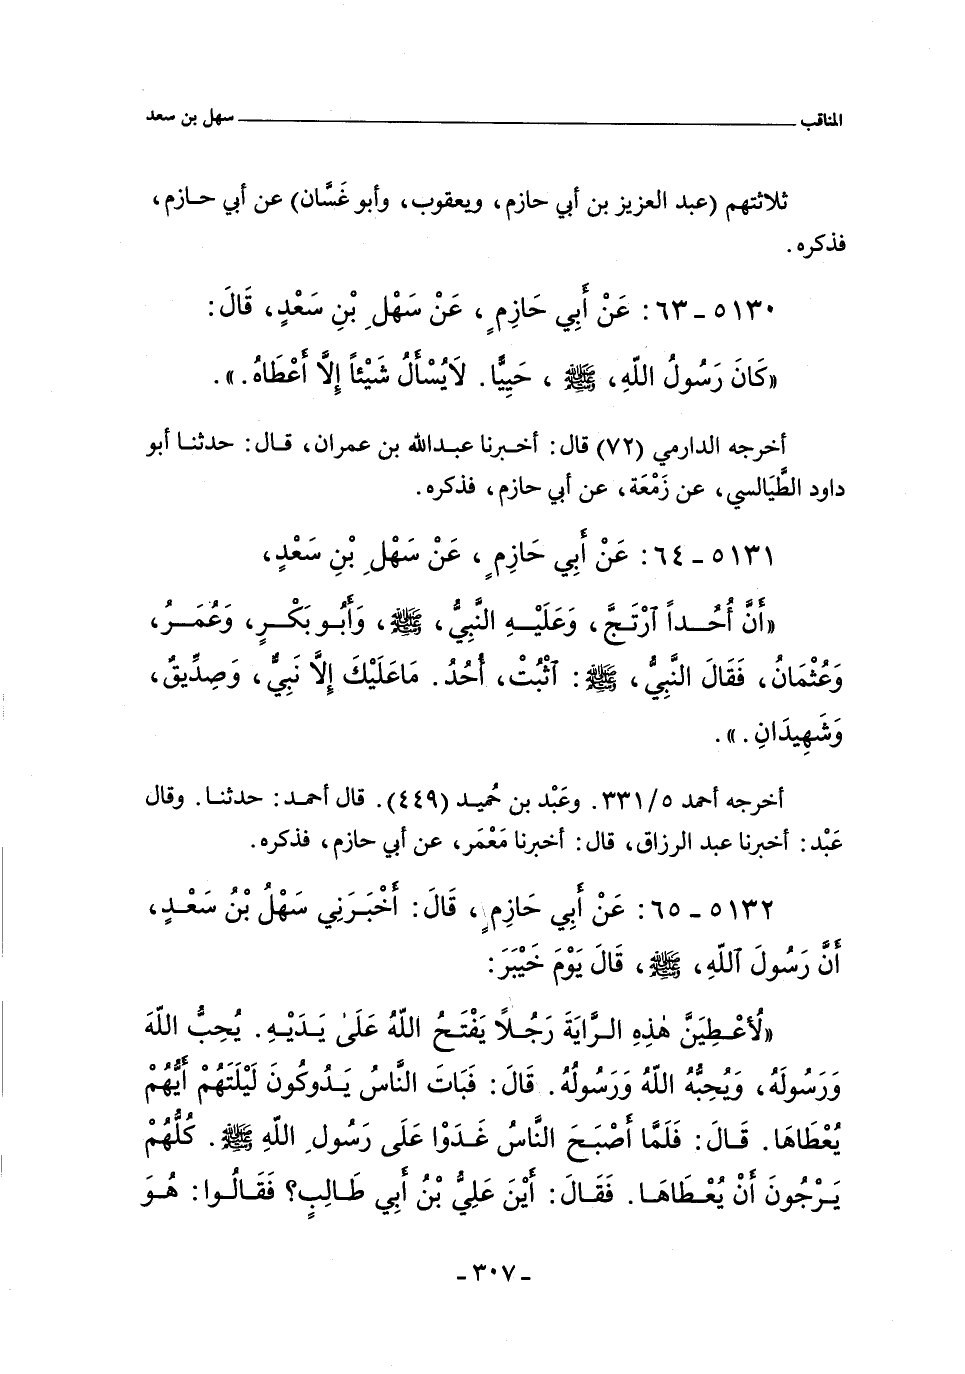 المناقب ــــــــــــــــــــــــــــــــــــــــ سهل بن سعد
ثلاثتهم (عبد العزيز بن أبي حازم، ويعقوب، وأبو غَسَّان) عن أبي حازم،
فذكره.
٥١٣٠ ـ ٦٣: عَنْ أَبِي حَازِمٍ، عَنْ سَهْلِ بْنِ سَعْدٍ، قَالَ:
«كَانَ رَسُولُ اللّهِ، ﷺ، حَيِيًّا. لَايُسْأَلُ شَيْئاً إِلَّا أَعْطَاهُ.».
أخرجه الدارمي (٧٢) قال: أخبرنا عبدالله بن عمران، قال: حدثنا أبو
داود الطَّيَالسي، عن زَمْعَة، عن أبي حازم، فذكره.
٥١٣١ ـ ٦٤: عَنْ أَبِي حَازِمٍ، عَنْ سَهْلِ بْنِ سَعْدٍ،
«أَنَّ أُحُداً ٱرْتَجَّ، وَعَلَيْهِ النَّبِيُّ، ﷺ، وَأَبُو بَكْرٍ، وَعُمَرُ،
وَعُثْمَانُ، فَقَالَ النَّبِيُّ، ﷺ: ٱثْبُتْ، أُحُدُ. مَاعَلَيْكَ إِلَّا نَبِيٌّ، وَصِدِّيقٌ،
وَشَهِيدَانِ.».
أخرجه أحمد ٣٣١/٥. وعَبْد بن حُميد (٤٤٩). قال أحمد: حدثنا. وقال
عَبْد: أخبرنا عبد الرزاق، قال: أخبرنا مَعْمَر، عن أبي حازم، فذكره.
٥١٣٢ ـ ٦٥: عَنْ أَبِي حَازِمٍ، قَالَ: أَخْبَرَنِي سَهْلُ بْنُ سَعْدٍ،
أَنَّ رَسُولَ ٱللّهِ، ﷺ، قَالَ يَوْمَ خَيْبَرَ:
«لُأعْطِيَنَّ هٰذِهِ الرَّايَةَ رَجُلاً يَفْتَحُ اللّهُ عَلَىٰ يَدَيْهِ. يُحِبُّ اللّهَ
وَرَسُولَهُ، وَيُحِبُّهُ اللّهُ وَرَسُولُهُ. قَالَ: فَبَاتَ النَّاسُ يَدُوكُونَ لَيْلَتَهُمْ أَيُّهُمْ
يُعْطَاهَا. قَالَ: فَلَمَّا أَصْبَحَ النَّاسُ غَدَوْا عَلَى رَسُولِ اللّهِ ﷺ. كُلُّهُمْ
يَرْجُونَ أَنْ يُعْطَاهَا. فَقَالَ: أَيْنَ عَلِيُّ بْنُ أَبِي طَالِبٍ؟ فَقَالُوا: هُوَ
ـ ٣٠٧ ـ